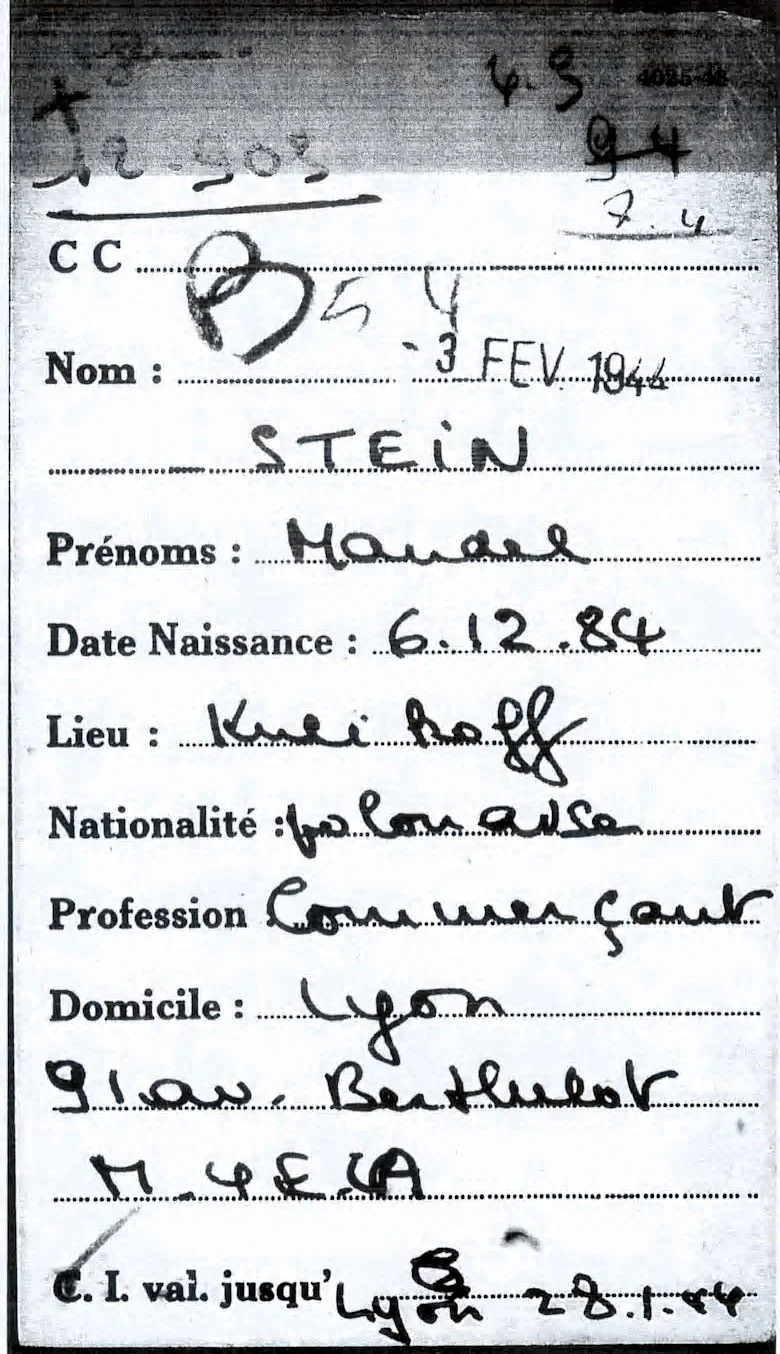 4.3 4025-43
12.903 94
7.4
CC
B 54
Nom : -3 FEV. 1944
STEiN
Prénoms : Mandel
Date Naissance : 6.12.84
Lieu : Roff
Nationalité : polonaise
Profession Commerçant
Domicile : Lyon
91 av. Berthelot
M. 4E.
C. I. val. jusqu' Lyon 28.1.44